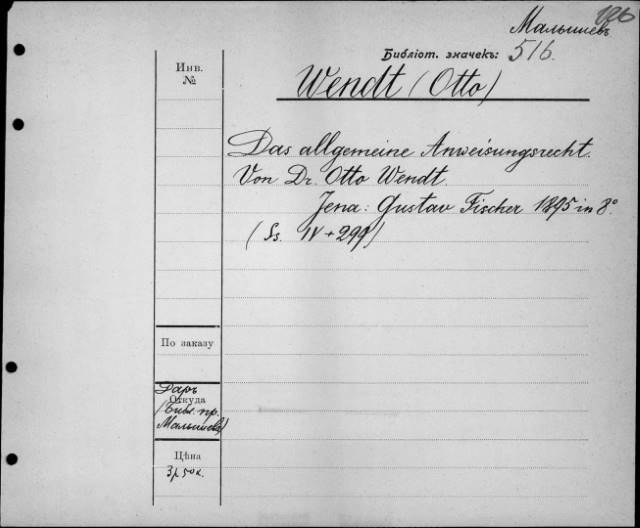 126
Малышевъ
Библіот. значекъ: 516.
Инв.
№
Wendt (Otto)
Das allgemeine Anweisungsrecht.
Von Dr. Otto Wendt.
Jena: Gustav Fischer 1895 in 8°
(Ss. IV + 299)
По заказу
Даръ
Откуда
(Библ. пр.
Малышева)
Цѣна
3р. 50к.